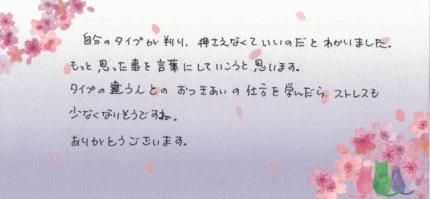 自分のタイプが判り、押さえなくていいのだとわかりました。
もっと思った事を言葉にしていこうと思います。
タイプの違う人とのおつきあいの仕方を学んだら、ストレスも
少なくなりそうですね。
ありがとうございます。